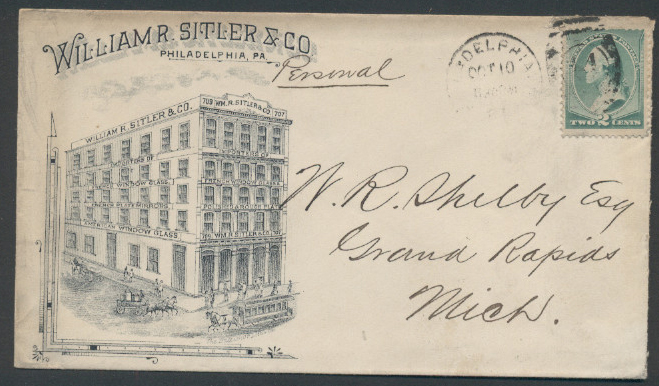 WILLIAM R. SITLER & CO.
PHILADELPHIA, PA.
Personal
ADELPHIA
OCT 10
TWO 2 CENTS
WILLIAM R. SITLER & CO.
709 WM. R. SITLER & CO. 707
IMPORTERS OF
WINDOW GLASS
FRENCH PLATE MIRRORS
AMERICAN WINDOW GLASS
W. R. Shelby Esq
Grand Rapids
Mich.